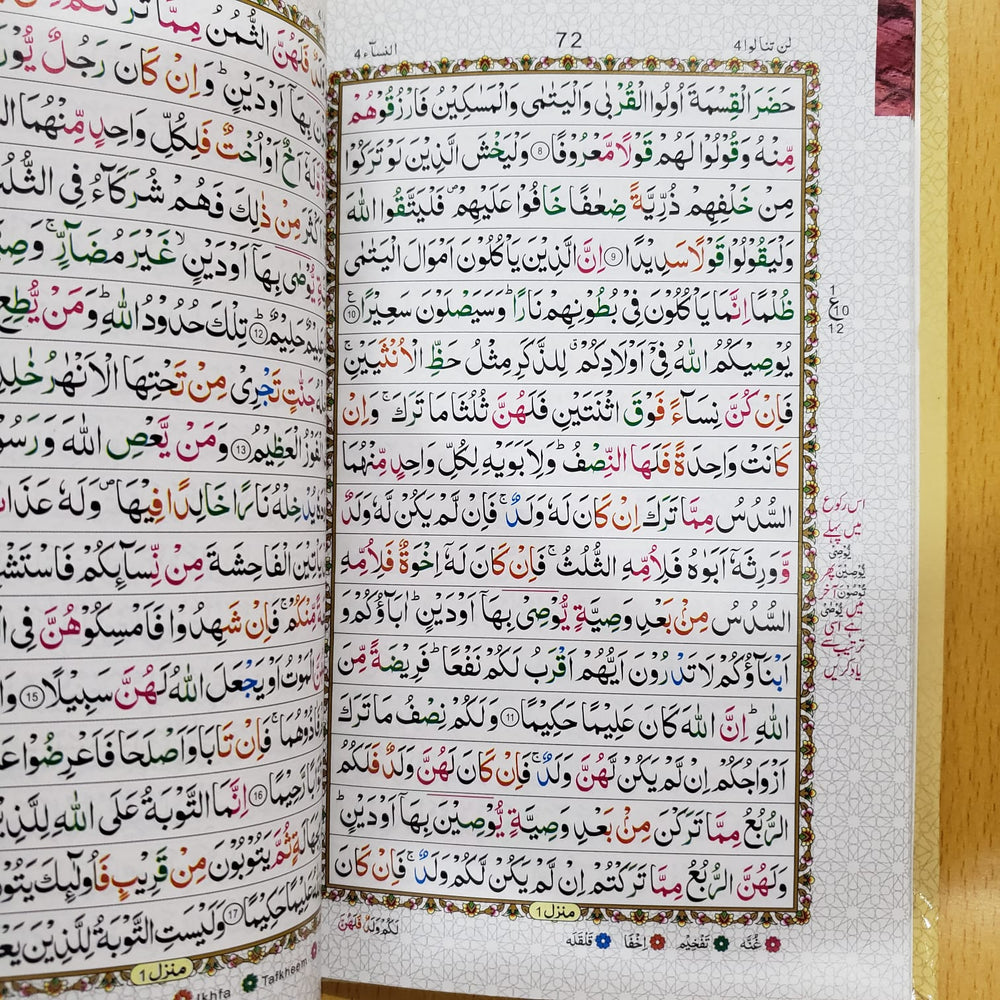 لن تنالوا 4
72
النسآء 4
حَضَرَ الْقِسْمَةَ اُولُوا الْقُرْبٰى وَالْيَتٰمٰى وَالْمَسٰكِيْنُ فَارْزُقُوْهُمْ
مِّنْهُ وَقُوْلُوْا لَهُمْ قَوْلًا مَّعْرُوْفًا ⑧ وَلْيَخْشَ الَّذِيْنَ لَوْ تَرَكُوْا
مِنْ خَلْفِهِمْ ذُرِّيَّةً ضِعٰفًا خَافُوْا عَلَيْهِمْ ۪ فَلْيَتَّقُوا اللّٰهَ
وَلْيَقُوْلُوْا قَوْلًا سَدِيْدًا ⑨ اِنَّ الَّذِيْنَ يَاْكُلُوْنَ اَمْوَالَ الْيَتٰمٰى
ظُلْمًا اِنَّمَا يَاْكُلُوْنَ فِيْ بُطُوْنِهِمْ نَارًا ؕ وَسَيَصْلَوْنَ سَعِيْرًا ⑩ ع
يُوْصِيْكُمُ اللّٰهُ فِيْٓ اَوْلَادِكُمْ ۗ لِلذَّكَرِ مِثْلُ حَظِّ الْاُنْثَيَيْنِ ۚ
فَاِنْ كُنَّ نِسَآءً فَوْقَ اثْنَتَيْنِ فَلَهُنَّ ثُلُثَا مَا تَرَكَ ۚ وَاِنْ
كَانَتْ وَاحِدَةً فَلَهَا النِّصْفُ ؕ وَلِاَبَوَيْهِ لِكُلِّ وَاحِدٍ مِّنْهُمَا
السُّدُسُ مِمَّا تَرَكَ اِنْ كَانَ لَهٗ وَلَدٌ ۚ فَاِنْ لَّمْ يَكُنْ لَّهٗ وَلَدٌ
وَّوَرِثَهٗٓ اَبَوٰهُ فَلِاُمِّهِ الثُّلُثُ ۚ فَاِنْ كَانَ لَهٗٓ اِخْوَةٌ فَلِاُمِّهِ
السُّدُسُ مِنْۢ بَعْدِ وَصِيَّةٍ يُّوْصِيْ بِهَآ اَوْ دَيْنٍ ؕ اٰبَآؤُكُمْ وَ
اَبْنَآؤُكُمْ لَا تَدْرُوْنَ اَيُّهُمْ اَقْرَبُ لَكُمْ نَفْعًا ؕ فَرِيْضَةً مِّنَ
اللّٰهِ ؕ اِنَّ اللّٰهَ كَانَ عَلِيْمًا حَكِيْمًا ⑪ وَلَكُمْ نِصْفُ مَا تَرَكَ
اَزْوَاجُكُمْ اِنْ لَّمْ يَكُنْ لَّهُنَّ وَلَدٌ ۚ فَاِنْ كَانَ لَهُنَّ وَلَدٌ فَلَكُمُ
الرُّبُعُ مِمَّا تَرَكْنَ مِنْۢ بَعْدِ وَصِيَّةٍ يُّوْصِيْنَ بِهَآ اَوْ دَيْنٍ ؕ
وَلَهُنَّ الرُّبُعُ مِمَّا تَرَكْتُمْ اِنْ لَّمْ يَكُنْ لَّكُمْ وَلَدٌ ۚ فَاِنْ كَانَ
منزل 1
لَكُمْ وَلَدٌ فَلَهُنَّ
غُنَّه تَفْخِيْم اِخْفَا قَلْقَلَه
1
ع 10
12
اس رکوع
میں پہلے
يُوْصِيْ
يُوْصِيْنَ پھر
تُوْصُوْنَ آخر
میں يُوْصٰى
ہے اسی
ترتیب سے
یاد کریں
فَلَهُنَّ الثُّمُنُ مِمَّا
بِهَآ اَوْ دَيْنٍ ؕ وَاِنْ كَانَ رَجُلٌ
وَّلَهٗٓ اَخٌ اَوْ اُخْتٌ فَلِكُلِّ وَاحِدٍ مِّنْهُمَا
مِنْ ذٰلِكَ فَهُمْ شُرَكَآءُ فِي
يُّوْصٰى بِهَآ اَوْ دَيْنٍ ۙ غَيْرَ مُضَآرٍّ ۚ
حَلِيْمٌ ⑫ تِلْكَ حُدُوْدُ اللّٰهِ ؕ وَمَنْ يُّطِعِ
جَنّٰتٍ تَجْرِيْ مِنْ تَحْتِهَا الْاَنْهٰرُ
الْفَوْزُ الْعَظِيْمُ ⑬ وَمَنْ يَّعْصِ اللّٰهَ
يُدْخِلْهُ نَارًا خَالِدًا فِيْهَا ۪ وَلَهٗ
يَاْتِيْنَ الْفَاحِشَةَ مِنْ نِّسَآئِكُمْ
مِّنْكُمْ ۚ فَاِنْ شَهِدُوْا فَاَمْسِكُوْهُنَّ فِي
الْمَوْتُ اَوْ يَجْعَلَ اللّٰهُ لَهُنَّ سَبِيْلًا ⑮
فَاِنْ تَابَا وَاَصْلَحَا فَاَعْرِضُوْا
رَّحِيْمًا ⑯ اِنَّمَا التَّوْبَةُ عَلَى اللّٰهِ
ثُمَّ يَتُوْبُوْنَ مِنْ قَرِيْبٍ فَاُولٰٓئِكَ
عَلِيْمًا حَكِيْمًا ⑰ وَلَيْسَتِ التَّوْبَةُ لِلَّذِيْنَ
منزل 1
Ikhfa Tafkheem